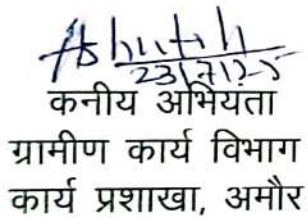 23/7/25
कनीय अभियता
ग्रामीण कार्य विभाग
कार्य प्रशाखा, अमौर